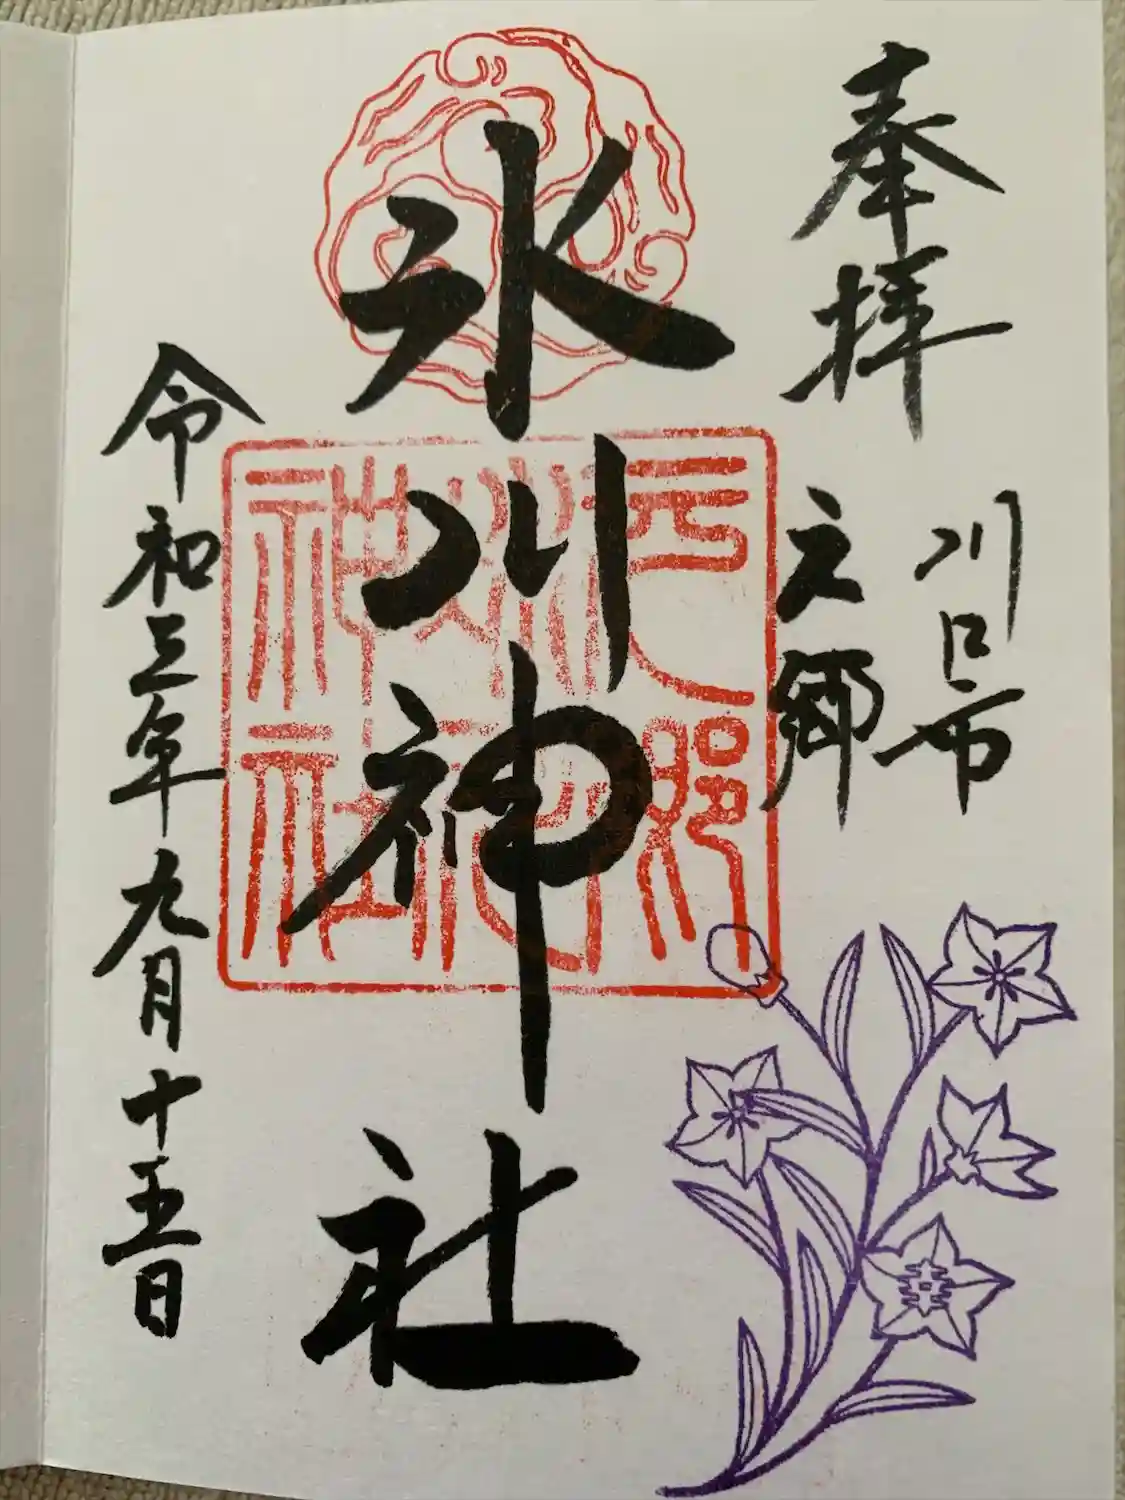 奉拝
川口市
元郷
氷川神社
元郷
氷川
神社
令和三年九月十五日
幸